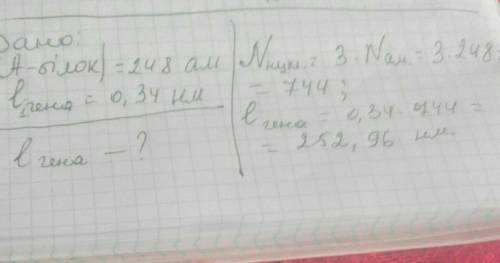 Дано:
(А-білок) = 248 ам
l гена = 0,34 нм
l гена — ?
Nнукл. = 3 · Nам. = 3 · 248 =
= 744 ;
l гена = 0,34 · 744 =
= 252, 96 нм.